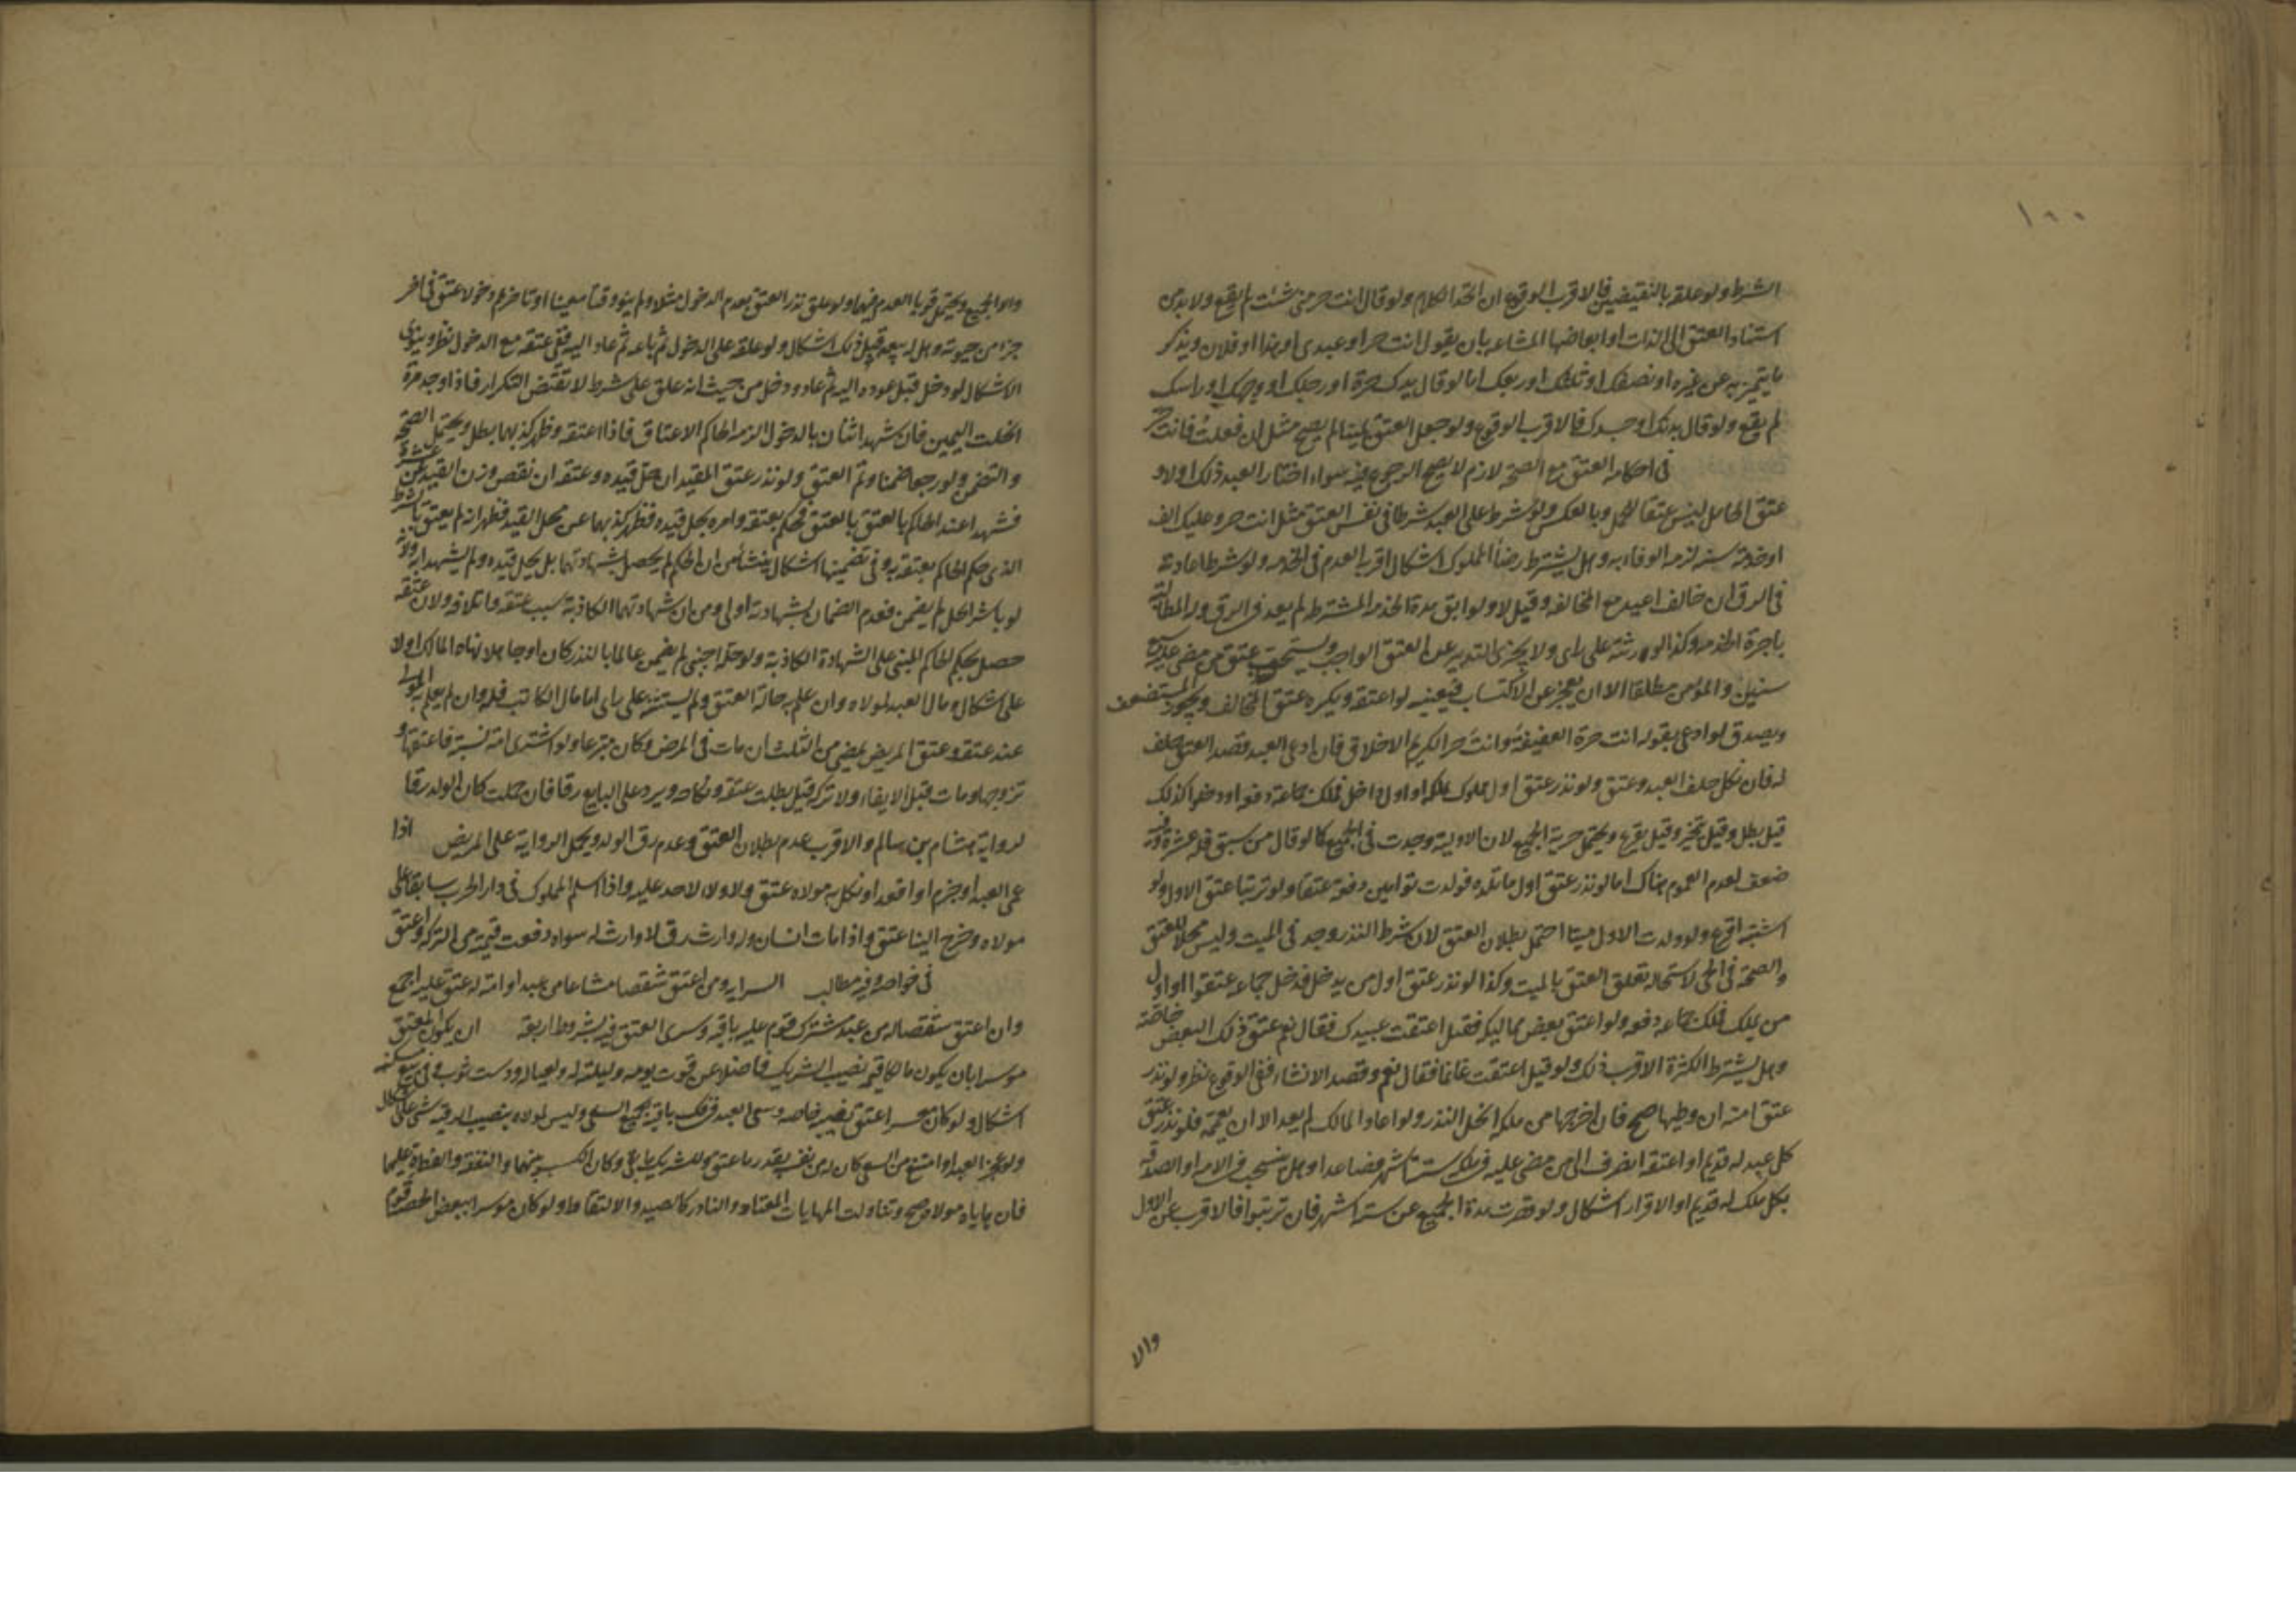 ١٠٠
الشرط ولو علقه بالنقيضين فالاقرب الوقوع ان اتحد الكلام ولو قال انت حر متى شئت لم يقع ولا بد من
اسناد العتق الى الذات او ابعاضها المشاعه بان يقول انت حر او عبدى او هذا او فلان ويذكر
ما يتميز به عن غيره او نصفك او ثلثك او ربعك اما لو قال يدك حرة او رجلك او وجهك او راسك
لم يقع ولو قال بدنك او جسدك فالاقرب الوقوع ولو جعل العتق يمينا لم يصح مثل ان فعلت فانت حر
فى احكامه العتق مع الصحة لازم لا يصح الرجوع فيه سواء اختار العبد ذلك او لا و
عتق الحامل ليس عتقا للحمل وبالعكس ولو شرط على العبد شرطا فى نفس العتق مثل انت حر وعليك الف
او خدمة سنه لزمه الوفاء به وهل يشترط رضا المملوك اشكال اقربه العدم فى الخدمه ولو شرط اعادته
فى الرق ان خالف اعيد مع المخالفه وقيل لا ولو ابق مدة الخدمه المشترطه لم يعد فى الرق وله المطالبة
باجرة الخدمه وكذا الورثة على راى ولا يجزى التدبير عن العتق الواجب ويستحب عتق من مضى عليه سبع
سنين والمؤمن مطلقا الا ان يعجز عن الاكتساب فيعينه لو اعتقه ويكره عتق المخالف ويجوز المستضعف
ويصدق لو ادعى بقوله انت حرة العفيفة وانت حر الكريم الاخلاق فان ادعى العبد قصد العتق حلف
له فان نكل حلف العبد وعتق ولو نذر عتق اول مملوك يملكه او اول داخل فملك جماعة دفعه او دخلوا كذلك
قيل بطل وقيل يتخير وقيل يقرع ويحتمل حرية الجميع لان الاولية وجدت فى الجميع كما لو قال من سبق فله عشرة وفيه
ضعف لعدم العموم هناك اما لو نذر عتق اول ما تلده فولدت توأمين دفعة عتقا ولو ترتبا عتق الاول ولو
اشتبه اقرع ولو ولدت الاول ميتا احتمل بطلان العتق لان شرط النذر وجد فى الميت وليس محلا للعتق
والصحة فى الحى لاستحالة تعلق العتق بالميت وكذا لو نذر عتق اول من يدخل فدخل جماعه عتقوا او اول
من يملك فملك جماعه دفعه ولو اعتق بعض مماليكه فقيل اعتقت عبيدك فقال نعم عتق ذلك البعض خاصة
وهل يشترط الكثرة الاقرب ذلك ولو قيل اعتقت غانما فقال نعم وقصد الانشاء ففى الوقوع نظر ولو نذر
عتق امته ان وطيها صح فان اخرجها من ملكه انحل النذر ولو اعاد المالك لم يعد الا ان يعمه فلو نذر عتق
كل عبد له قديم او اعتقه انصرف الى من مضى عليه فى ملكه ستة اشهر فصاعدا وهل ينسحب فى الامه او الصدقه
بكل ملك له قديم او الاقرار اشكال ولو قصرت مدة الجميع عن ستة اشهر فان ترتبوا فالاقرب عتق الاول
والا
والا الجميع ويحتمل قويا العدم فيهما ولو علق نذر العتق بعدم الدخول مثلا ولم ينو وقتا معينا او تاخره دخولا عتق فى اخر
جزء من حيوته وهل له بيعه قبل ذلك اشكال ولو علقه على الدخول ثم باعه ثم عاد اليه ففى عتقه مع الدخول نظر ويقوى
الاشكال لو دخل قبل عوده اليه ثم عاد ودخل من حيث انه علق على شرط لا تقتضى التكرار فاذا وجد مرة
انحلت اليمين فان شهد اثنان بالدخول الزمه الحاكم الاعتاق فاذا اعتقه وظهر كذبهما بطل ويحتمل الصحة
والتضمين ولو رجعا ضمنا وتم العتق ولو نذر عتق المقيد ان حل قيده وعتقه ان نقص وزن القيد عن عشرة
فشهدا عند الحاكم بالعتق بالعتق فحكم بعتقه وامره بحل قيده فظهر كذبهما عن حل القيد فظهر انه لم يعتق بالشرط
الذى حكم الحاكم بعتقه به وفى تضمينها اشكال ينشأ من ان الحكم لم يحصل بشهادتهما بل بحل قيده ولم يشهدا به ولانه
لو باشر الحل لم يضمن فعدم الضمان بشهادته اولى ومن ان شهادتهما الكاذبة سبب عتقه واتلافه ولان عتقه
حصل بحكم الحاكم المبنى على الشهادة الكاذبة ولو حله اجنبى لم يضمن عالما بالنذر كان او جاهلا نهاه المالك او لا
على اشكال ومال العبد لمولاه وان علم به حالة العتق ولم يستثنه على راى اما مال المكاتب فله وان لم يعلم به المولى
عند عتقه وعتق المريض يمضى من الثلث ان مات فى المرض وكان متبرعا ولو اشترى امة نسية فاعتقها و
تزوجها ومات قبل الايفاء ولا تركه قيل بطلت عتقه ونكاحه ويرد على البايع رقا فان حملت كان الولد رقا
لرواية هشام بن سالم والاقرب عدم بطلان العتق وعدم رق الولد ويحمل الرواية على المريض اذا
عمى العبد او جذم او اقعد او نكل به مولاه عتق ولا ولاء لاحد عليه واذا اسلم المملوك فى دار الحرب سابقا على
مولاه وخرج الينا عتق واذا مات انسان وله وارث رق لا وارث له سواه دفعت قيمته من التركه واعتق
فى خواصه وفيه مطالب السرايه ومن اعتق شقصا مشاعا من عبده او امته عتق عليه اجمع
وان اعتق شقصا له من عبد مشترك قوم عليه باقيه وسرى العتق فيه بشروط اربعة ان يكون المعتق
موسرا بان يكون مالكا قيمة نصيب الشريك فاضلا عن قوت يومه وليلته له ولعياله ودست ثوب وفى بيع مسكنه
اشكال ولو كان معسرا عتق نصيبه خاصه وسعى العبد فى فك باقيه بجميع السعى وليس لمولاه بنصيب الرقيه شى على اشكال
ولو عجز العبد او امتنع من السعى كان له من نفسه بقدر ما عتق وللشريك ما بقى وكان الكسب بينهما والنفقه والفطرة عليهما
فان هاياه مولاه صح وتناولت المهاياة المعتاد والنادر كالصيد والالتقاط ولو كان موسرا ببعض الحصة قوم